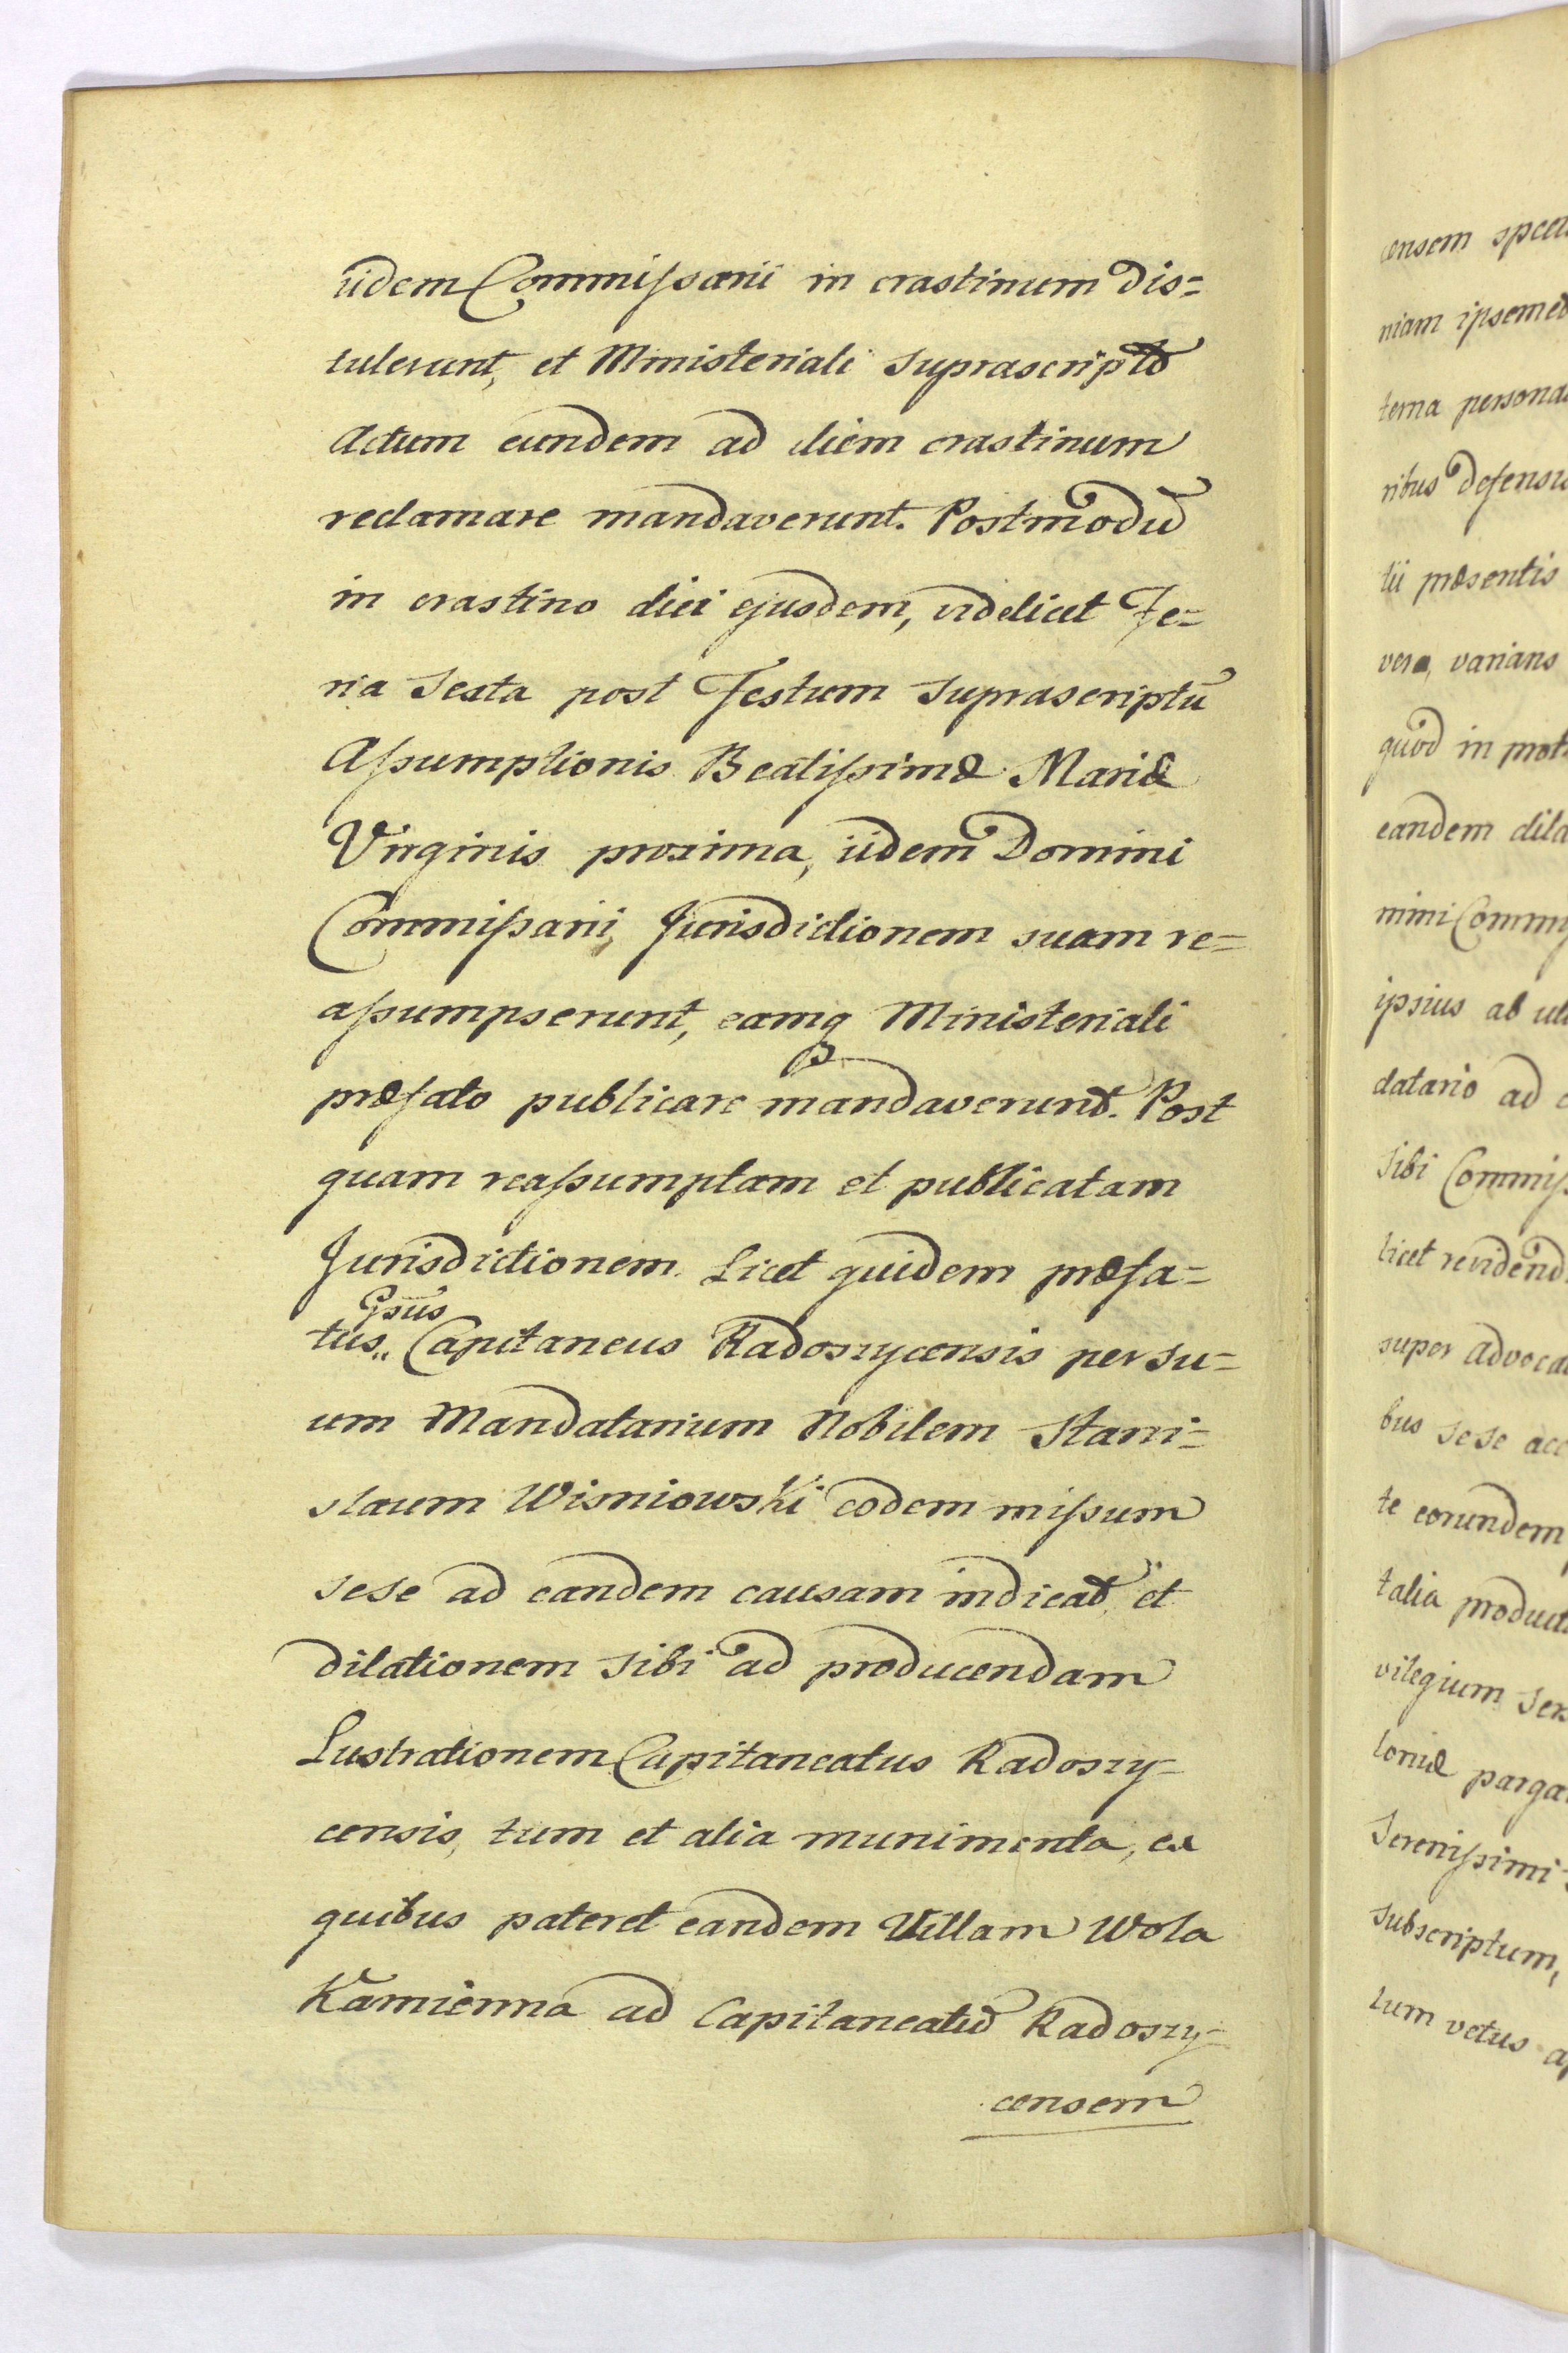 iidem Commissarii in crastinum dis=
tulerunt, et Ministeriali suprascripto
Actum eundem ad diem crastinum
reclamare mandaverunt. Postmodū
in crastino diei ejusdem, videlicet Fe=
ria Sexta post Festum suprascriptū
Assumptionis Beatissimæ Mariæ
Virginis proxima, iidem Domini
Commissarii, Jurisdictionem suam re=
assumpserunt, eamq Ministeriali
præfato publicare mandaverunt. Post
quam reassumptam et publicatam
Jurisdictionem. Licet quidem præfa=
Gsus
tus,, Capitaneus Radoszycensis per su=
um Mandatarium Nobilem Stani=
slaum Wisniowski eodem missum
sese ad eandem causam indicat, et
dilationem sibi ad producendam
Lustrationem Capitaneatus Radoszy=
censis, tum et alia munimenta, ex
quibus pateret eandem Villam Wola
Kamienna ad Capitaneatū Radoszy=
censem
censem
niam
terna
ribus
tii præsentis
vero, varians
quod in
eandem
mini
ipsius ab
datario ad
sibi
licet
super
bus sese
te eorundem
talia
vilegium
loniæ
Serenissimi
subscriptum,
tum vetus